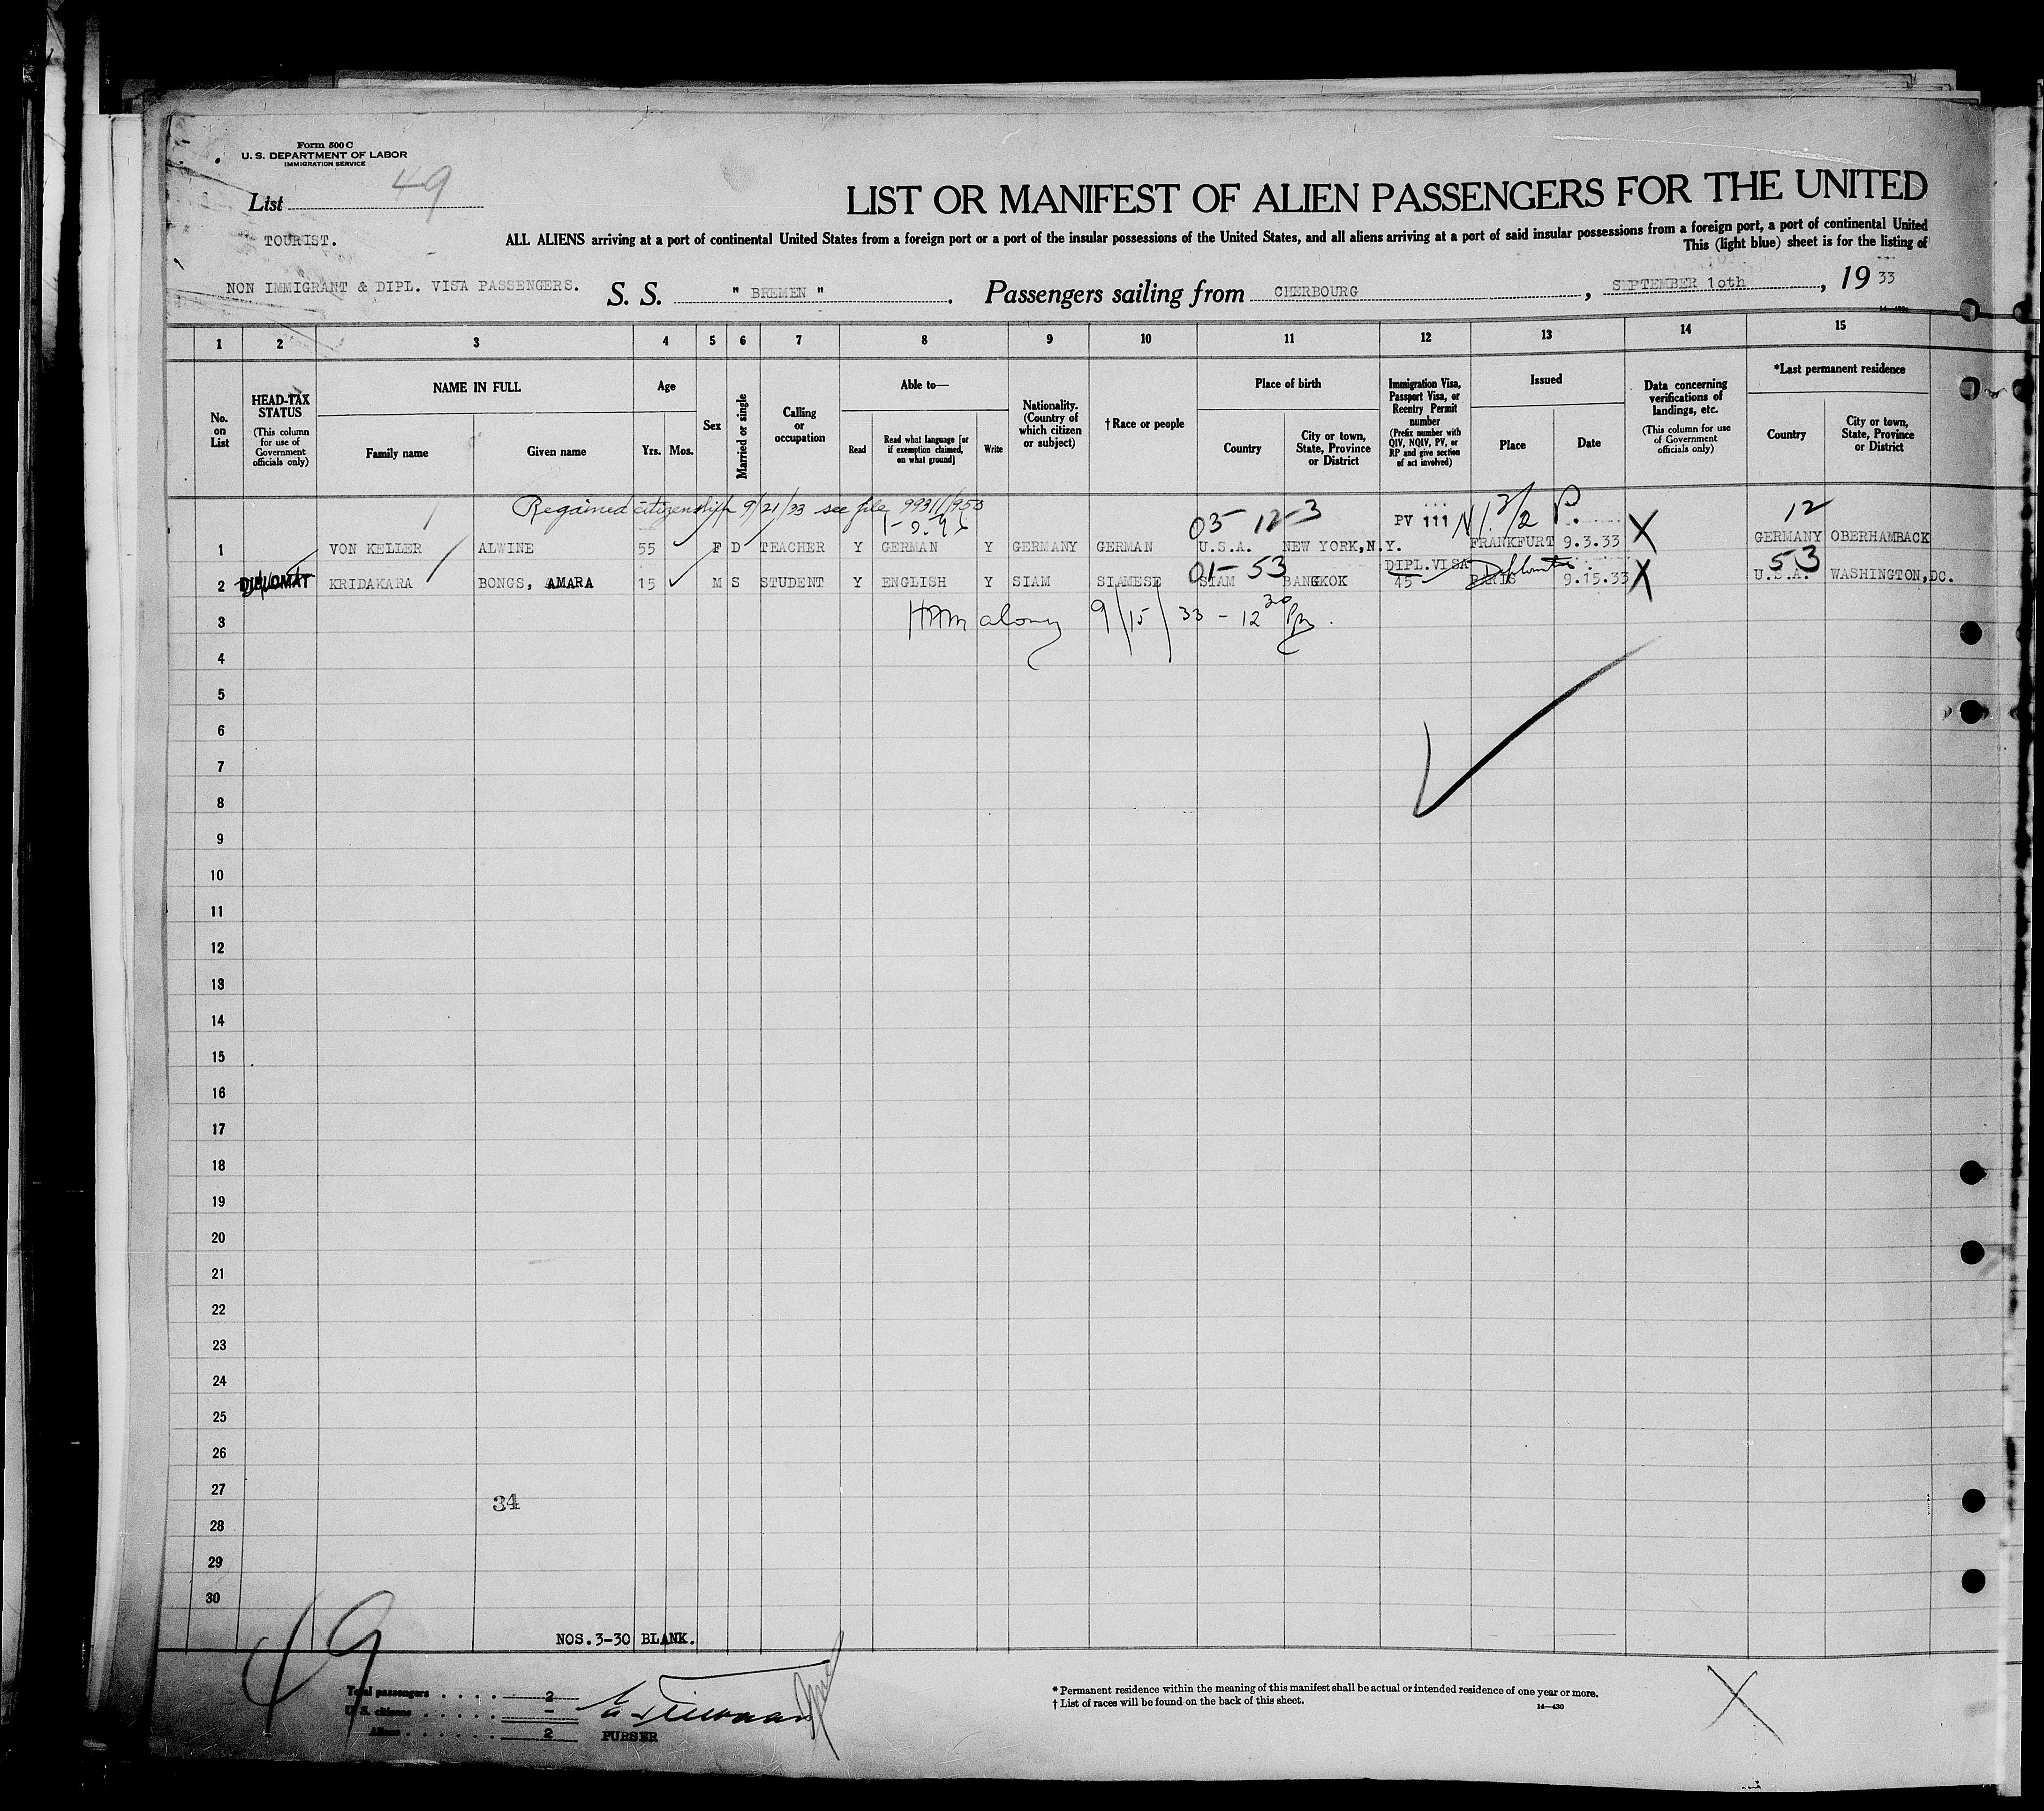 Form 500 C
U. S. DEPARTMENT OF LABOR
IMMIGRATION SERVICE
List 49
LIST OR MANIFEST OF ALIEN PASSENGERS FOR THE UNITED
TOURIST.
ALL ALIENS arriving at a port of continental United States from a foreign port or a port of the insular possessions of the United States, and all aliens arriving at a port of said insular possessions from a foreign port, a port of continental United
This (light blue) sheet is for the listing of
NON IMMIGRANT & DIPL. VISA PASSENGERS. S. S. " BREMEN ". Passengers sailing from CHERBOURG, SEPTEMBER 1oth, 19 33
1 2 3 4 5 6 7 8 9 10 11 12 13 14 15
No. on List
HEAD-TAX STATUS (This column for use of Government officials only)
NAME IN FULL
Family name Given name
Age
Yrs. Mos.
Sex
Married or single
Calling or occupation
Able to—
Read Read what language [or if exemption claimed, on what ground] Write
Nationality. (Country of which citizen or subject)
† Race or people
Place of birth
Country City or town, State, Province or District
Immigration Visa, Passport Visa, or Reentry Permit number (Prefix number with QIV, NQIV, PV, or RP and give section of act involved)
Issued
Place Date
Data concerning verifications of landings, etc. (This column for use of Government officials only)
*Last permanent residence
Country City or town, State, Province or District
Regained citizenship 9/21/33 see file 99311/950
05 12-3 PV 111 P. 12
1 VON KELLER ALWINE 55 F D TEACHER Y GERMAN Y GERMANY GERMAN U.S.A. NEW YORK,N.Y. FRANKFURT 9.3.33 X GERMANY OBERHAMBACK
01-53 DIPL.VISA Diplomatic 53
2 DIPLOMAT KRIDAKARA BONGS, AMARA 15 M S STUDENT Y ENGLISH Y SIAM SIAMESE SIAM BANGKOK 45 PARIS 9.15.33 X U.S.A. WASHINGTON,DC.
3 9/15/33 - 12 30 Pm.
4
5
6
7
8
9
10
11
12
13
14
15
16
17
18
19
20
21
22
23
24
25
26
27
34
28
29
30
NOS.3-30 BLANK.
19
Total passengers . . . . . 2
U. S. citizens . . . . . . -
Aliens . . . . . . . . 2 PURSER
* Permanent residence within the meaning of this manifest shall be actual or intended residence of one year or more.
† List of races will be found on the back of this sheet.
14—430
X